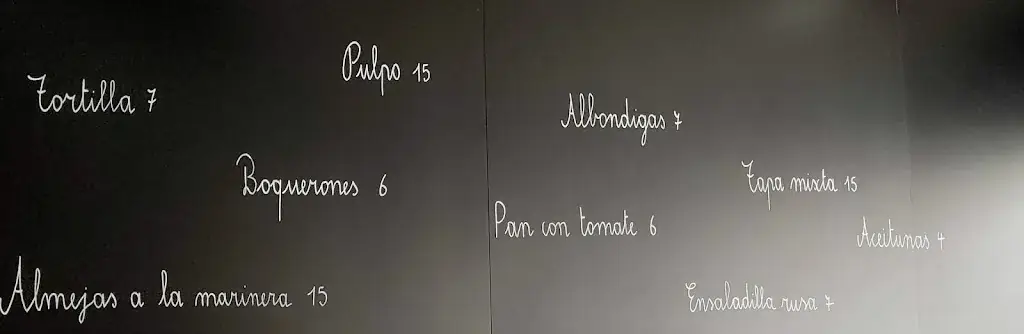 Tortilla 7
Pulpo 15
Boquerones 6
Almejas a la marinera 15
Albondigas 7
Tapa mixta 15
Pan con tomate 6
Aceitunas 4
Ensaladilla rusa 7